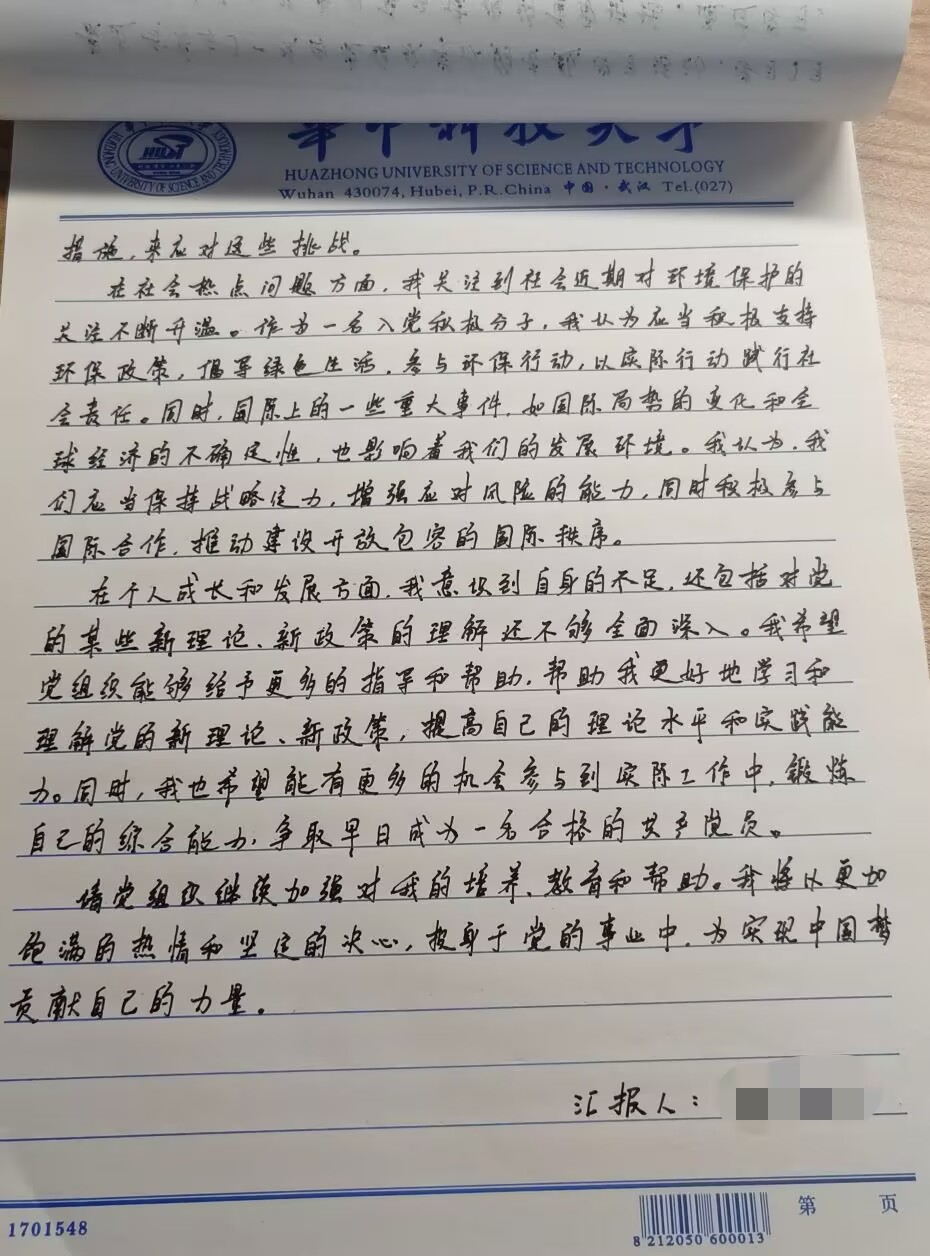 华中科技大学
HUAZHONG UNIVERSITY OF SCIENCE AND TECHNOLOGY
Wuhan 430074, Hubei, P.R.China 中国·武汉 Tel.(027)
措施,来应对这些挑战。
在社会热点问题方面,我关注到社会近期对环境保护的
关注不断升温。作为一名入党积极分子,我认为应当积极支持
环保政策,倡导绿色生活,参与环保行动,以实际行动践行社
会责任。同时,国际上的一些重大事件,如国际局势的变化和全
球经济的不确定性,也影响着我们的发展环境。我认为,我
们应当保持战略定力,增强应对风险的能力,同时积极参与
国际合作,推动建设开放包容的国际秩序。
在个人成长和发展方面,我意识到自身的不足,还包括对党
的某些新理论、新政策的理解还不够全面深入。我希望
党组织能够给予更多的指导和帮助,帮助我更好地学习和
理解党的新理论、新政策,提高自己的理论水平和实践能
力。同时,我也希望能有更多的机会参与到实际工作中,锻炼
自己的综合能力,争取早日成为一名合格的共产党员。
请党组织继续加强对我的培养、教育和帮助。我将以更加
饱满的热情和坚定的决心,投身于党的事业中,为实现中国梦
贡献自己的力量。
汇报人:
1701548
8 212050 600013
第 页